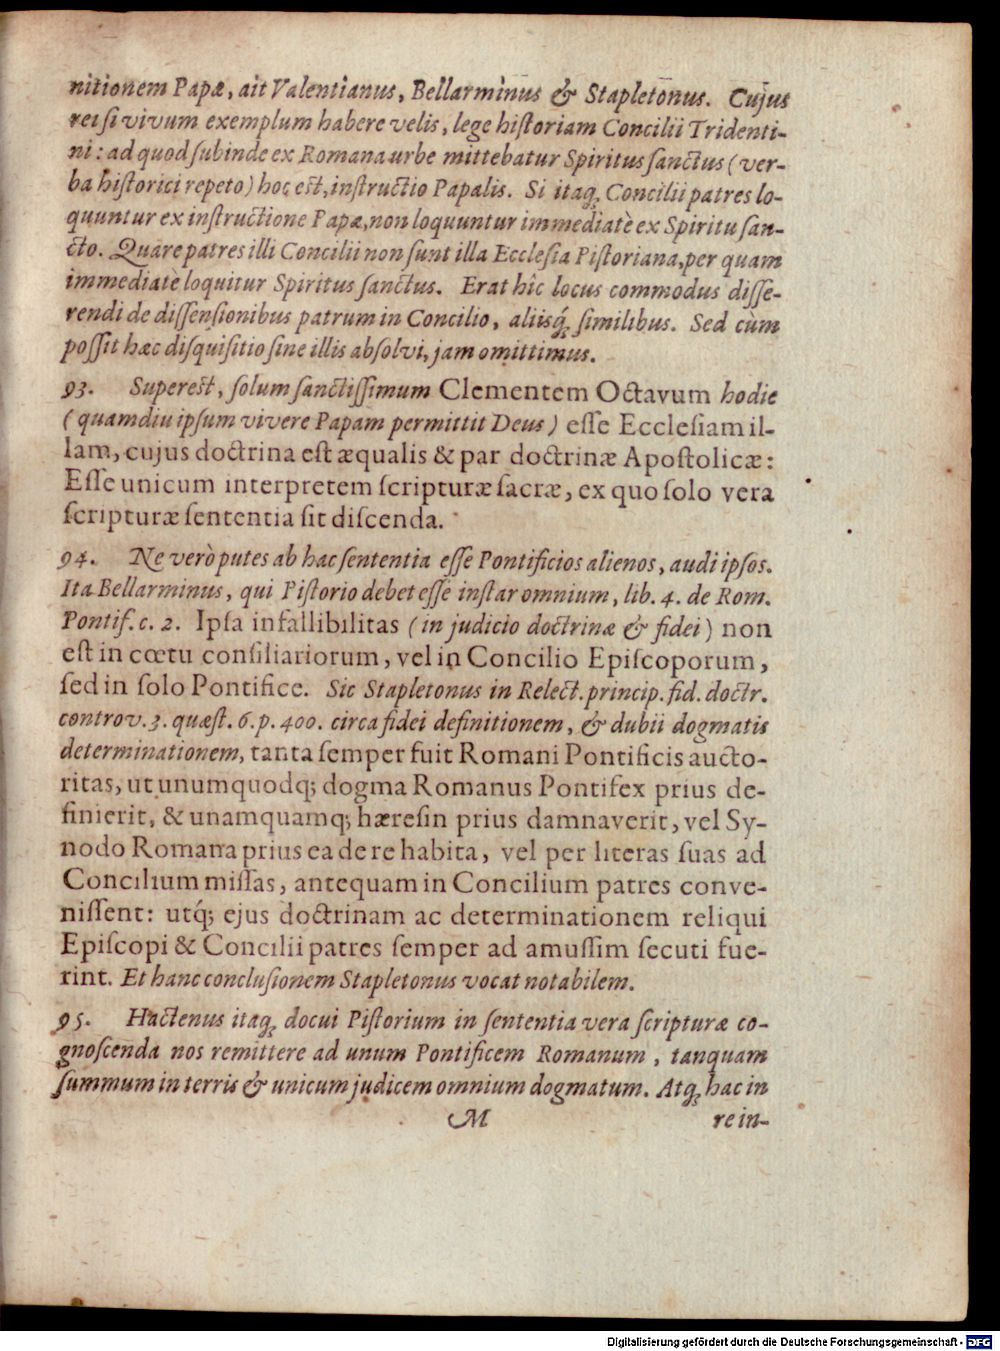 nitionem Papæ, ait Valentianus, Bellarminus & Stapletonus. Cujus
rei si vivum exemplum habere velis, lege historiam Concilii Tridenti-
ni: ad quod subinde ex Romana urbe mittebatur Spiritus sanctus (ver-
ba historici repeto) hoc est, instructio Papalis. Si itaq; Concilii patres lo-
quuntur ex instructione Papæ, non loquuntur immediatè ex Spiritu san-
cto. Quare patres illi Concilii non sunt illa Ecclesia Pistoriana, per quam
immediatè loquitur Spiritus sanctus. Erat hîc locus commodus disse-
rendi de dissensionibus patrum in Concilio, aliisq́; similibus. Sed cùm
possit hæc disquisitio sine illis absolvi, jam omittimus.
93. Superest, solum sanctissimum Clementem Octavum hodie
(quamdiu ipsum vivere Papam permittit Deus) esse Ecclesiam il-
lam, cujus doctrina est æqualis & par doctrinæ Apostolicæ:
Esse unicum interpretem scripturæ sacræ, ex quo solo vera
scripturæ sententia sit discenda.
94. Ne verò putes ab hac sententia esse Pontificios alienos, audi ipsos.
Ita Bellarminus, qui Pistorio debet esse instar omnium, lib. 4. de Rom.
Pontif. c. 2. Ipsa infallibilitas (in judicio doctrinæ & fidei) non
est in cœtu consiliariorum, vel in Concilio Episcoporum,
sed in solo Pontifice. Sic Stapletonus in Relect. princip. fid. doctr.
controv. 3. quæst. 6. p. 400. circa fidei definitionem, & dubii dogmatis
determinationem, tanta semper fuit Romani Pontificis aucto-
ritas, ut unumquodq; dogma Romanus Pontifex prius de-
finierit, & unamquamq; hæresin prius damnaverit, vel Sy-
nodo Romana prius ea de re habita, vel per literas suas ad
Concilium missas, antequam in Concilium patres conve-
nissent: utq́; ejus doctrinam ac determinationem reliqui
Episcopi & Concilii patres semper ad amussim secuti fue-
rint. Et hanc conclusionem Stapletonus vocat notabilem.
95. Hactenus itaq; docui Pistorium in sententia vera scripturæ co-
gnoscenda nos remittere ad unum Pontificem Romanum, tanquam
summum in terris & unicum judicem omnium dogmatum. Atq; hac in
M re in-
Digitalisierung gefördert durch die Deutsche Forschungsgemeinschaft - DFG